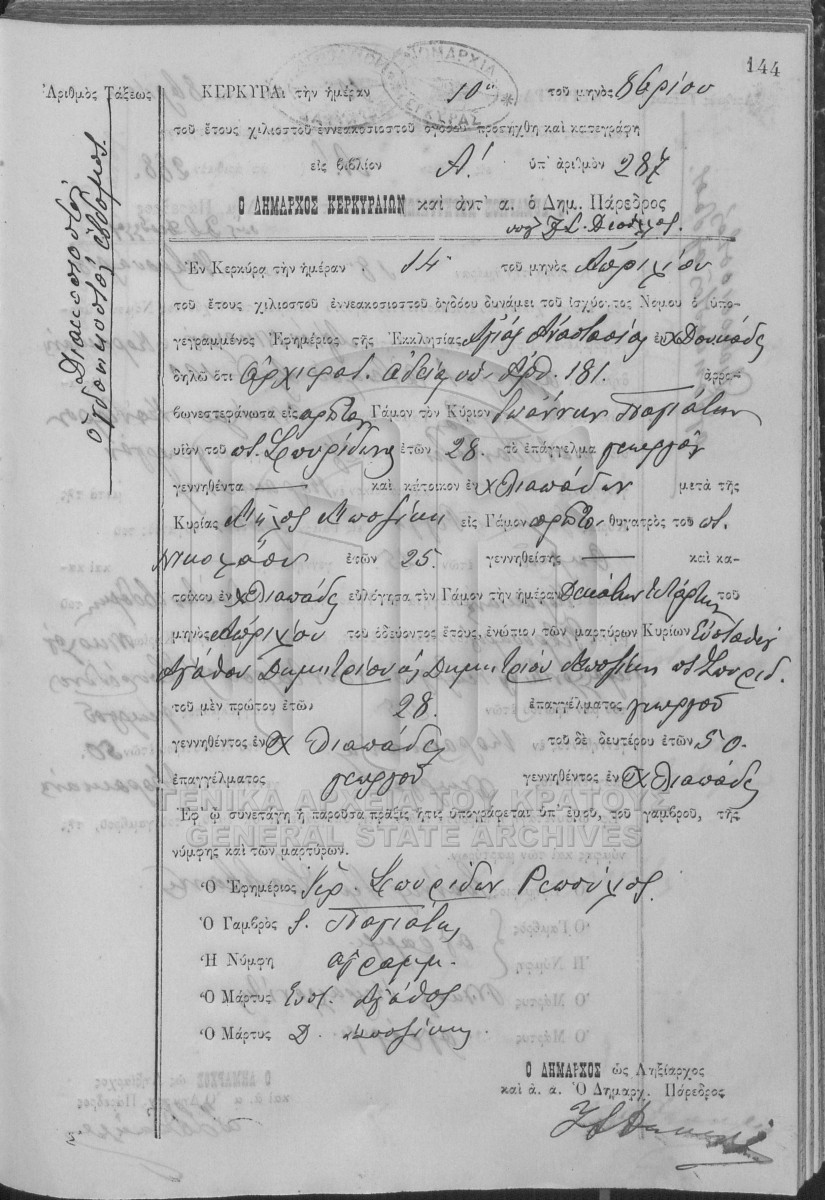 144
Ἀριθμὸς Τάξεως
Διακοσιοστὸς
ὀγδοηκοστὸς ἕβδομος
ΚΕΡΚΥΡΑι τὴν ἡμέραν 10ην τοῦ μηνὸς 8βρίου
τοῦ ἔτους χιλιοστοῦ ἐννεακοσιοστοῦ ὀγδόου προσήχθη καὶ κατεγράφη
εἰς βιβλίον Α! ὑπ' ἀριθμὸν 287
Ο ΔΗΜΑΡΧΟΣ ΚΕΡΚΥΡΑΙΩΝ καὶ ἀντ' α. ὁ Δημ. Πάρεδρος
Ἐν Κερκύρᾳ τὴν ἡμέραν 14 τοῦ μηνὸς Ἀπριλίου
τοῦ ἔτους χιλιοστοῦ ἐννεακοσιοστοῦ ὀγδόου δυνάμει τοῦ ἰσχύοντος Νόμου ὁ ὑπο-
γεγραμμένος Ἐφημέριος τῆς Ἐκκλησίας Ἁγίας Ἀναστασίας ἐν χ Δουκάδες
δηλῶ ὅτι ἀρχιερατ. ἀδείᾳ ὑπ. Ἀρθ. 181. ἀρρα-
βωνεστεφάνωσα εἰς πρῶτον Γάμον τὸν Κύριον Ἰωάννην Παγιάτην
υἱὸν τοῦ ποτ. Σπυρίδωνος ἐτῶν 28. τὸ ἐπάγγελμα γεωργὸν
γεννηθέντα — καὶ κάτοικον ἐν χ Λιαπάδων μετὰ τῆς
Κυρίας Μποζίκη εἰς Γάμον πρῶτον θυγατρὸς τοῦ ποτ.
Νικολάου ἐτῶν 25. γεννηθείσης — καὶ κα-
τοίκου ἐν χ Λιαπάδες εὐλόγησα τὸν Γάμον τὴν ἡμέραν Δεκάτην τετάρτην τοῦ
μηνὸς Ἀπριλίου τοῦ ὁδεύοντος ἔτους, ἐνώπιον τῶν μαρτύρων Κυρίων Εὐσταθίου
Ἀγάθου Δημητρίου & Δημητρίου Μποζίκη ποτ Σπυρίδ.
τοῦ μὲν πρώτου ἐτῶν 28. ἐπαγγέλματος γεωργοῦ
γεννηθέντος ἐν χ Λιαπάδες τοῦ δὲ δευτέρου ἐτῶν 50.
ἐπαγγέλματος γεωργοῦ γεννηθέντος ἐν χ Λιαπάδες
ΓΕΝΙΚΑ ΑΡΧΕΙΑ ΤΟΥ ΚΡΑΤΟΥΣ
Ἐφ ᾧ συνετάγη ἡ παροῦσα πρᾶξις ἥτις ὑπογράφεται ὑπ' ἐμοῦ, τοῦ γαμβροῦ, τῆς
GENERAL STATE ARCHIVES
νύμφης καὶ τῶν μαρτύρων.
Ὁ Ἐφημέριος Ἱερ. Σπυρίδων Ρεπούλος
Ὁ Γαμβρὸς Ι. Παγιάτης
Ἡ Νύμφη ἀγράμμ.
Ὁ Μάρτυς Εὐστ. Ἀγάθος
Ὁ Μάρτυς Δ. Μποζίκης
Ο ΔΗΜΑΡΧΟΣ ὡς Ληξίαρχος
καὶ ἀ. α. Ὁ Δημαρχ. Πάρεδρος